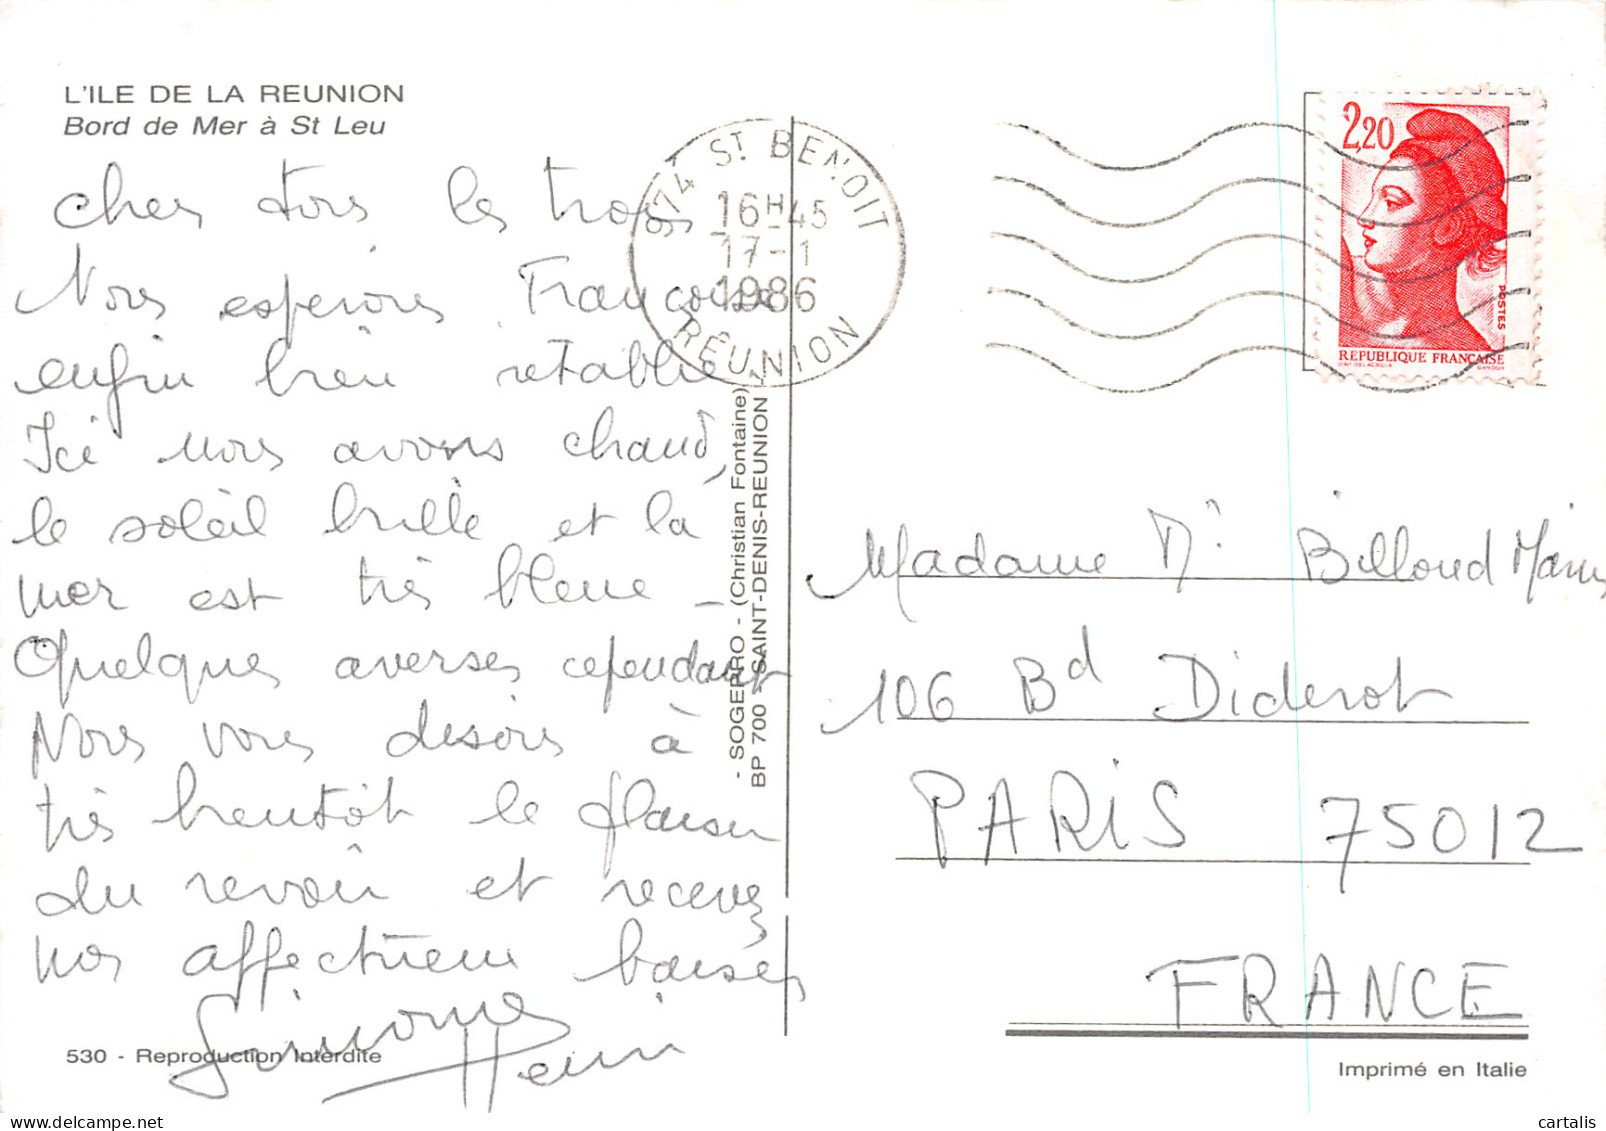 L'ILE DE LA REUNION
Bord de Mer à St Leu
Chers tous les trois
Nous espérons Françoise
enfin bien rétablie.
Ici nous avons chaud,
le soleil brille et la
mer est très bleue -
Quelques averses cependant
Nous vous disons à
très bientôt le plaisir
du revoir et recevez
nos affectueux baisers
Simone
Henri
530 - Reproduction Interdite
- SOGEPRO - (Christian Fontaine)
BP 700 - SAINT-DENIS-REUNION
974 ST BENOIT
16H45
17-1
1986
RÉUNION
2,20
POSTES
REPUBLIQUE FRANÇAISE
Madame Mr Billoud
106 Bd Diderot
PARIS 75012
FRANCE
Imprimé en Italie
cartalis